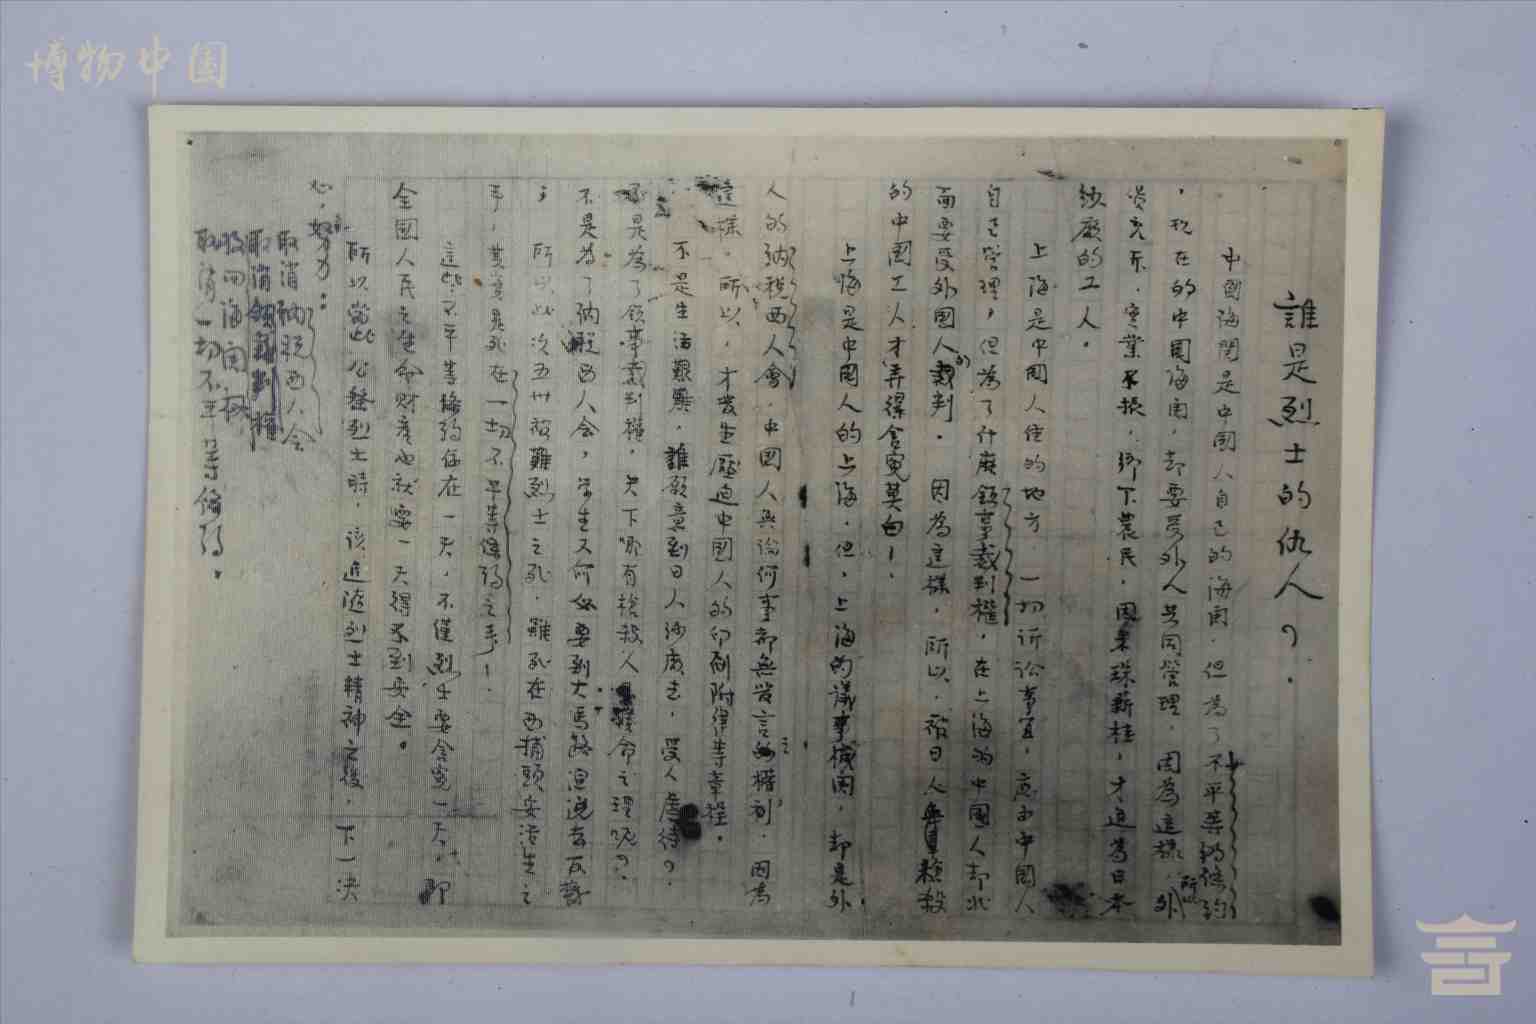 博物中国
誰是烈士的仇人？
中國海関是中國人自己的海関，但為了不平等條約
，現在的中國海関，却要受外人共同管理，因為這樣，所以外
貨充斥，實業不振，鄉下農民，因米珠薪桂，才進為日本
纱廠的工人。
上海是中國人住的地方，一切訴讼事宜，應由中國人
自己管理，但為了什麽領事裁判權，在上海的中國人却非
而要受外國人的裁判。因為這樣，所以，被日人無辜槍殺
的中國工人才弄得含寃莫白！
上海是中國人的上海，但，上海的議事機関，却是外
人的纳税西人會，中國人無論何事都無發言之權利，因為
這樣，所以，才發生壓迫中國人的印刷附律等章程。
不是生活艱難，誰願意到日人纱廠去，受人虐待？
不是為了領事裁判權，天下哪有槍殺人命之理呢？
不是為了纳税西人会，学生又何必要到大馬路演説去
，所以此次五卅被難烈士之死，雖死在西捕頭安活生之
手，其实是死在一切不平等條約之手！
這些不平等條約存在一天，不僅烈士要含寃一天，即
全國人民之生命財產也就要一天得不到安全。
所以當此公祭烈士時，该追隨烈士精神之後，下一决
心，努力：
取消納税西人会
取消領事裁判權
收回海関權
取消一切不平等條約。